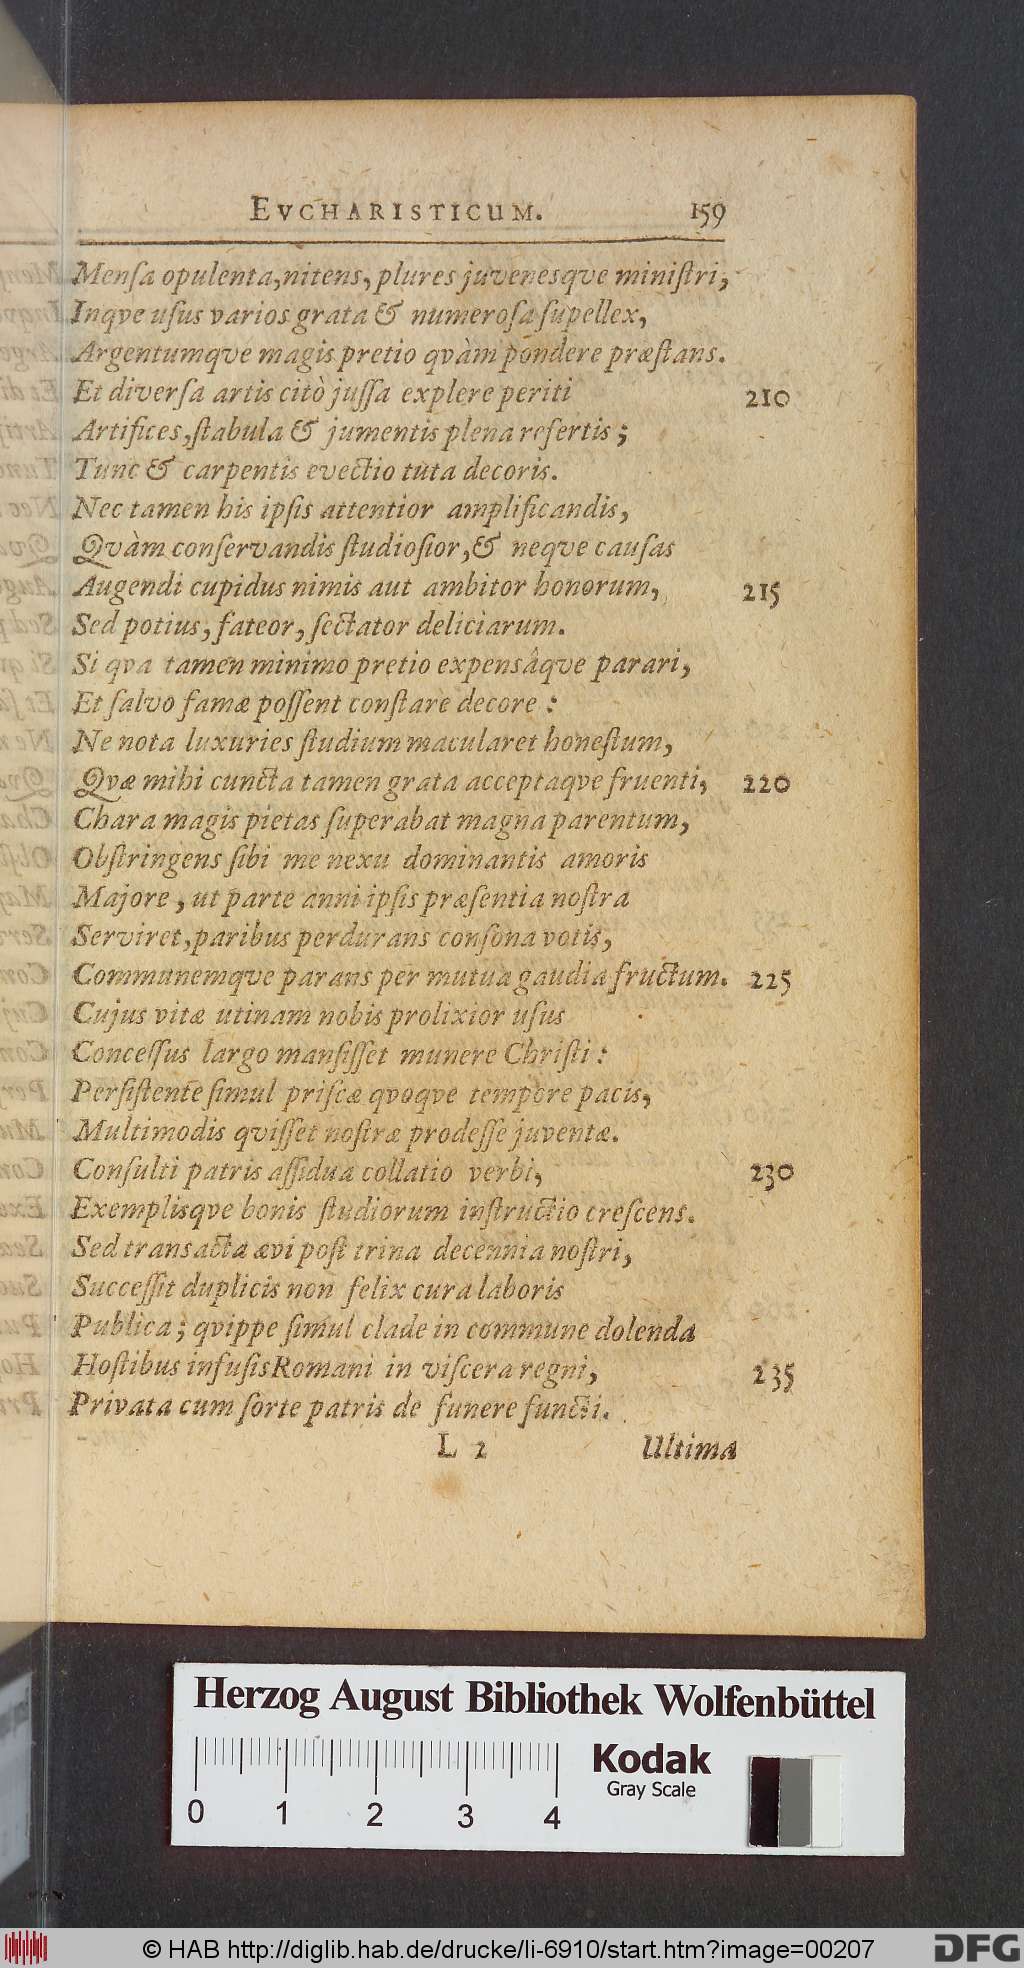 EVCHARISTICUM. 159
Mensa opulenta, nitens, plures juvenesqve ministri,
Inqve usus varios grata & numerosa supellex,
Argentumqve magis pretio qvàm pondere præstans.
Et diversa artis citò jussa explere periti 210
Artifices, stabula & jumentis plena refertis;
Tunc & carpentis evectio tuta decoris.
Nec tamen his ipsis attentior amplificandis,
Qvàm conservandis studiosior, & neqve causas
Augendi cupidus nimis aut ambitor honorum, 215
Sed potius, fateor, sectator deliciarum.
Si qva tamen minimo pretio expensâqve parari,
Et salvo famæ possent constare decore:
Ne nota luxuries studium macularet honestum,
Qvæ mihi cuncta tamen grata acceptaqve fruenti, 220
Chara magis pietas superabat magna parentum,
Obstringens sibi me nexu dominantis amoris
Majore, ut parte anni ipsis præsentia nostra
Serviret, paribus perdurans consona votis,
Communemqve parans per mutua gaudia fructum. 225
Cujus vitæ utinam nobis prolixior usus
Concessus largo mansisset munere Christi:
Persistente simul priscæ qvoqve tempore pacis,
Multimodis qvisset nostræ prodesse juventæ.
Consulti patris assidua collatio verbi, 230
Exemplisqve bonis studiorum instructio crescens.
Sed transacta ævi post trina decennia nostri,
Successit duplicis non felix cura laboris
Publica; qvippe simul clade in commune dolenda
Hostibus infusis Romani in viscera regni, 235
Privata cum sorte patris de funere functi.
L 2 Ultima
Herzog August Bibliothek Wolfenbüttel
Kodak
Gray Scale
0 1 2 3 4
© HAB http://diglib.hab.de/drucke/li-6910/start.htm?image=00207
DFG